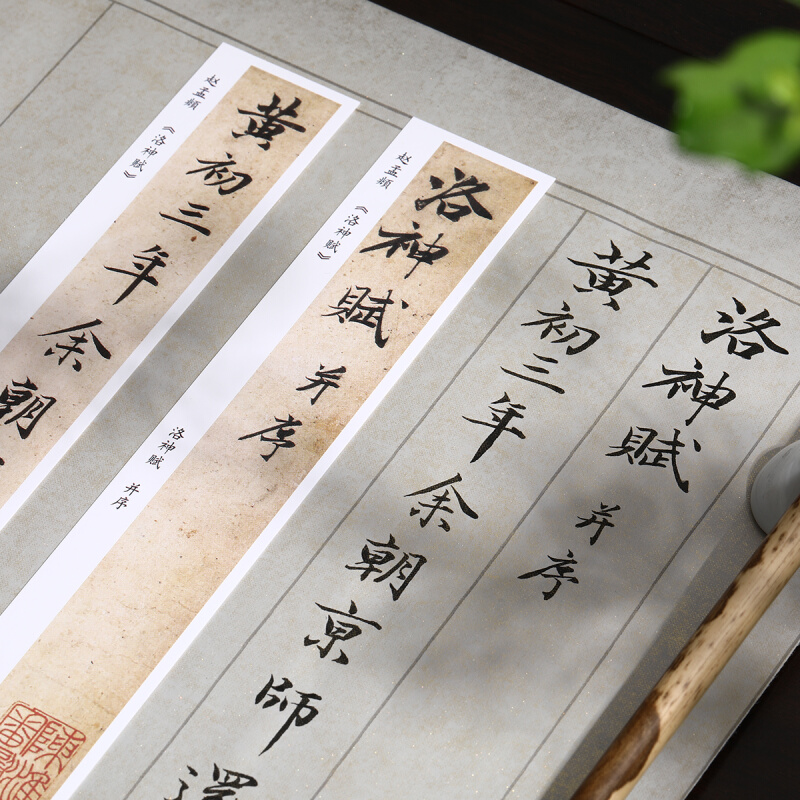 洛神賦 并序
黄初三年余朝京師還
赵孟頫 《洛神賦》
洛神賦 并序
洛神賦 并序
赵孟頫 《洛神賦》
黄初三年余朝